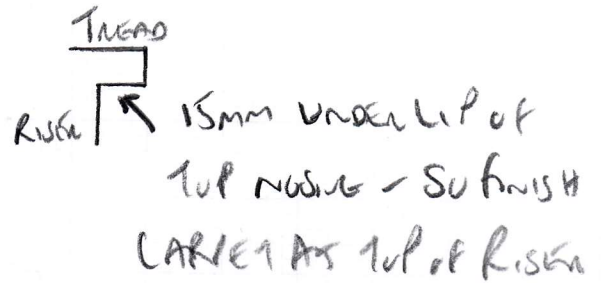 TREAD
RISER
15MM UNDER LIP OF
TOP NOSING - SO FINISH
CARPET AT TOP OF RISER